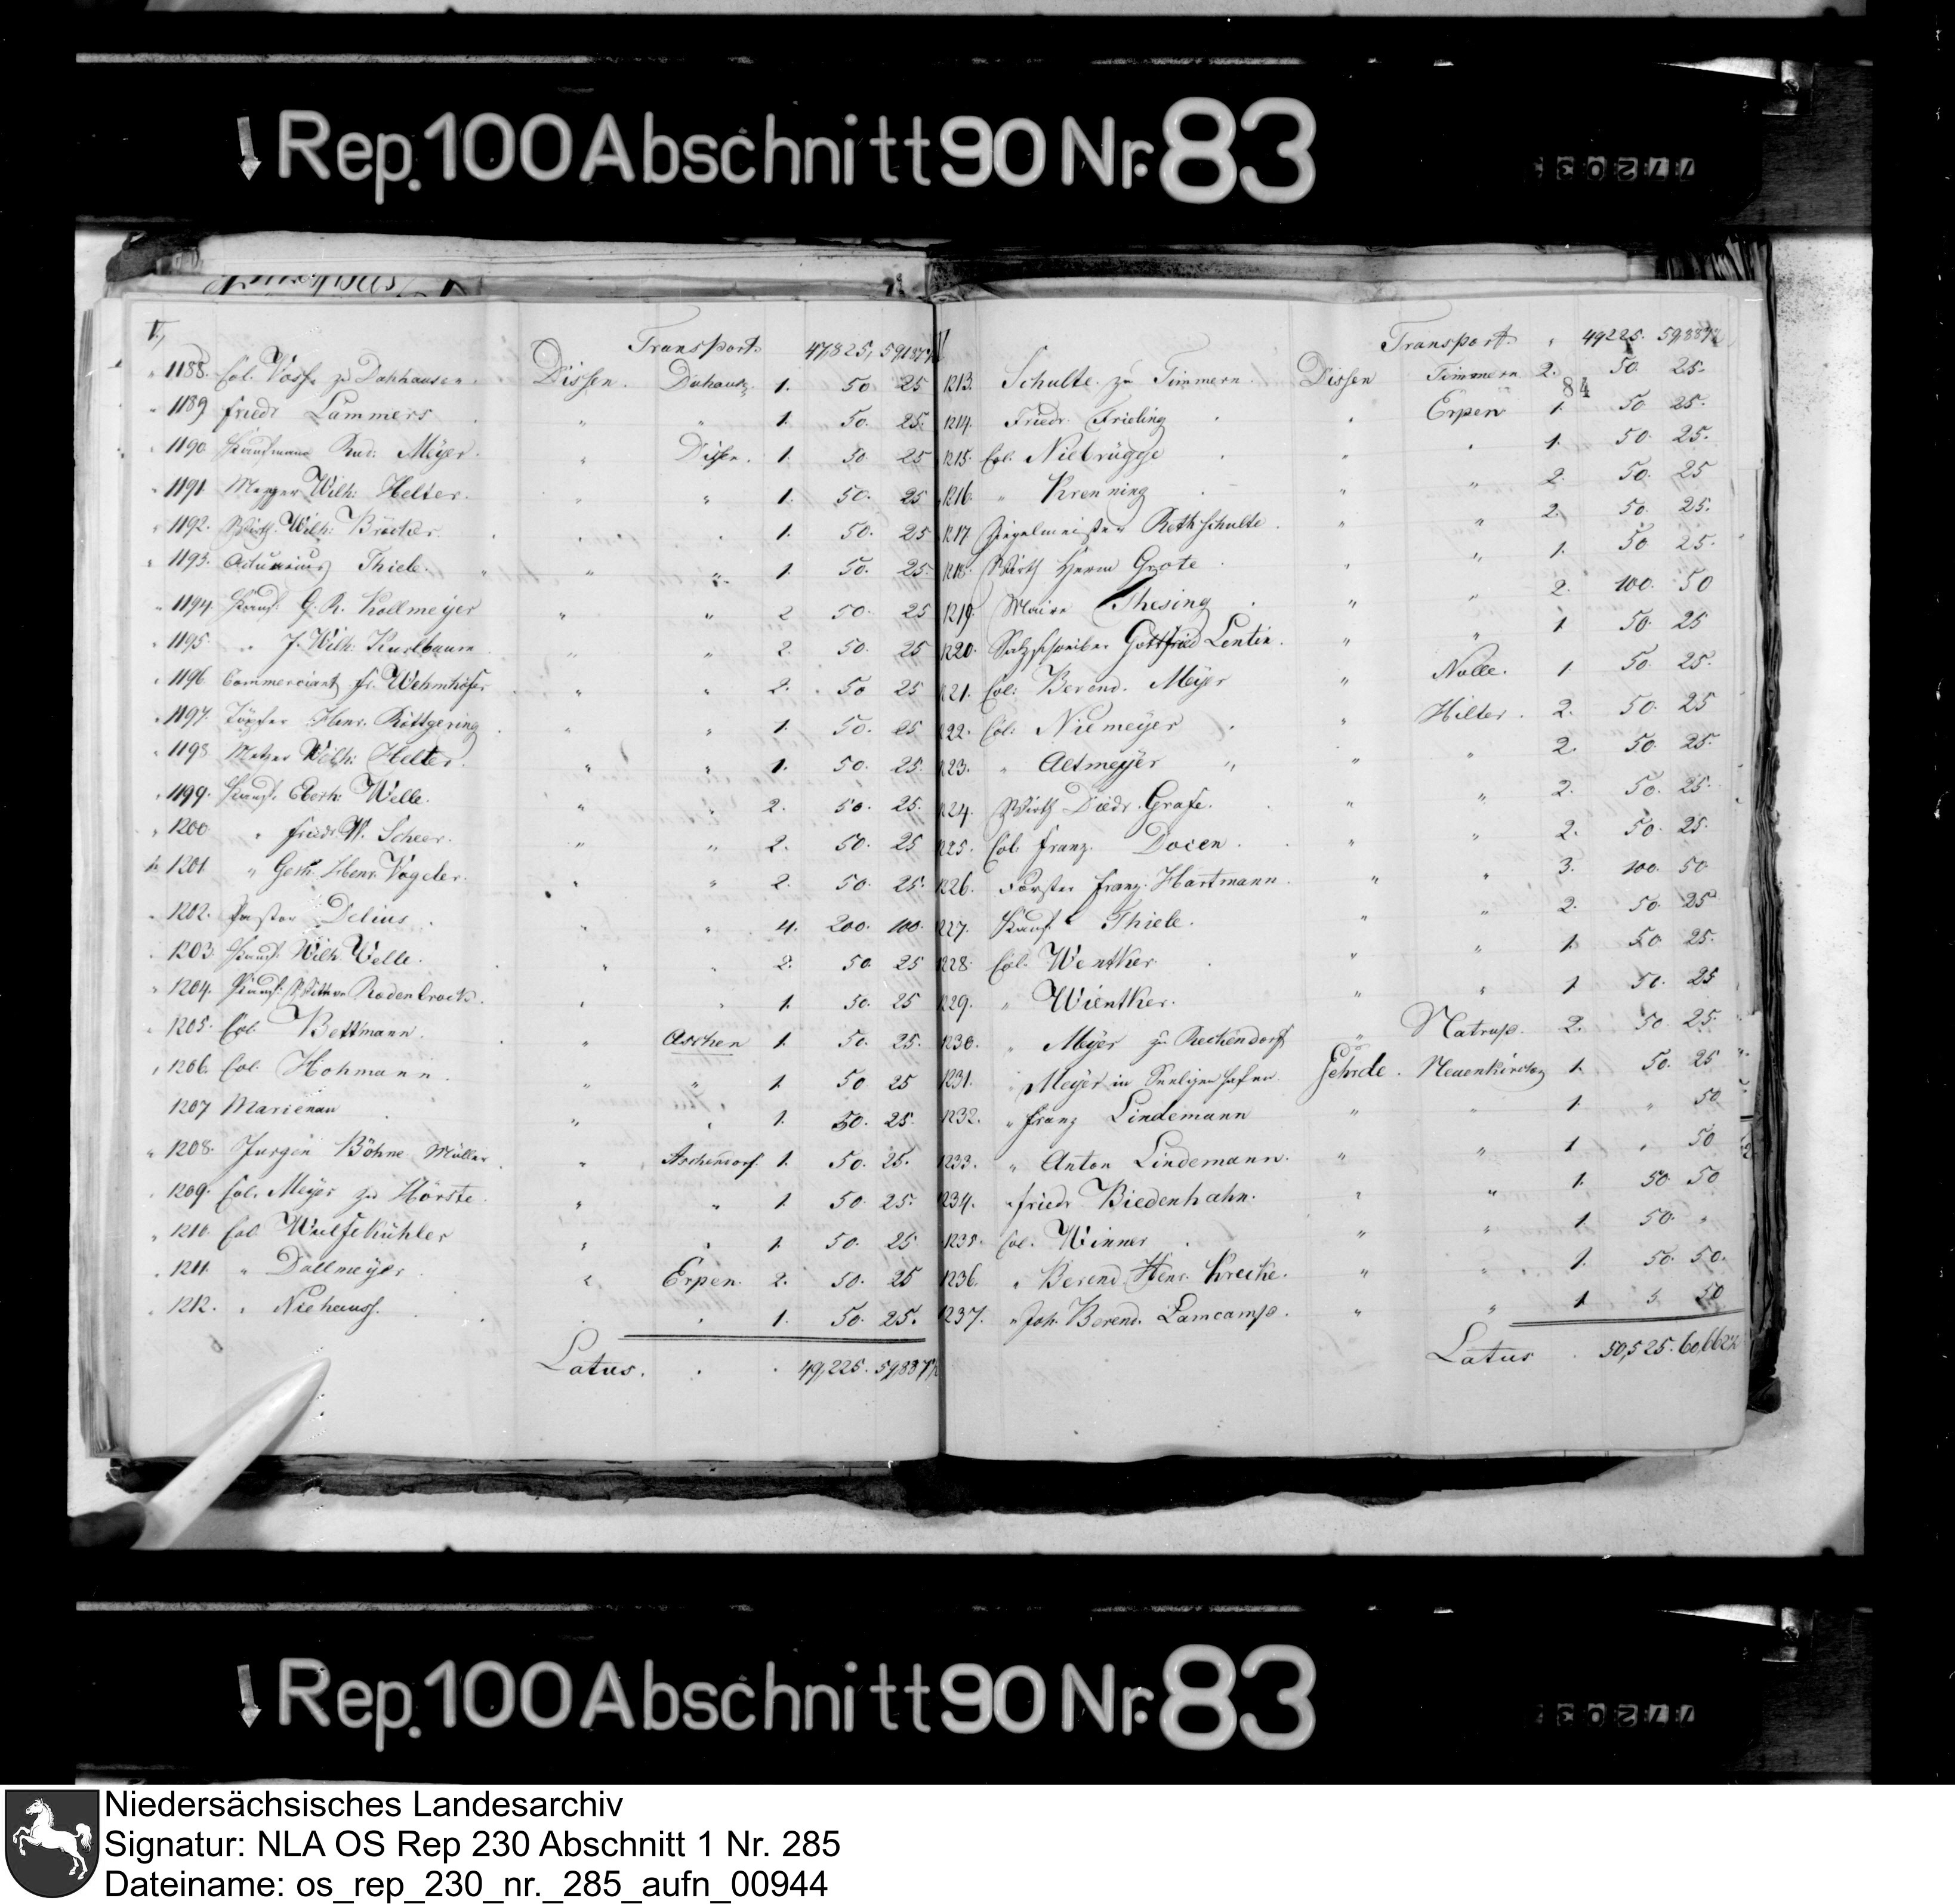 Rep. 100 Abschnitt 90 Nr. 83
V,
Transport 47,825, 59187½
1188. Col. Voss zu Dahhausen. Dissen. 1. 50 25
1189 Friedr Lammers " " 1. 50. 25.
1190 Kaufmann Rud: Meyer. " Dissen. 1. 50 25
1191 Metzger Wilh: Helter. " " 1. 50. 25
1192. Wirth. Wilh: Bröcker. " " 1. 50. 25
1193. Actuarius Thiele. " " 1. 50. 25.
1194. Kauf: G. R. Kollmeyer " " 2 50. 25
1195. " J. Wilh: Karlbaum " " 2. 50. 25
1196 Commerciant Fr. Wehmhöfer " " 2. 50 25
1197. Töpfer Henr. Röttgering " " 1. 50. 25
1198 Metzer Wilh: Helter. " " 1. 50. 25.
1199. Kauf. Eberh: Welle. " " 2. 50. 25.
1200 " Friedr W. Scheer. " " 2. 50. 25
1201 " Gerh. Henr. Vogeler. " " 2. 50. 25.
1202. Pastor Delius. " " 4. 200. 100.
1203 Kauf. Wilh Welle. " " 2. 50. 25
1204. Kauf: Wittwe Rodenbrock. " " 1. 50. 25
1205. Col. Bettmann. " Aschen 1. 50. 25.
1206. Col. Hohmann. " " 1. 50 25
1207 Marienau " " 1. 50. 25.
1208. Jurgen Böhne Müller " Aschendorf. 1. 50. 25.
1209. Col. Meyer zu Hörste. " " 1. 50. 25.
1210. Col Wulfekühler " " 1. 50. 25.
1211. " Dallmeyer " Erpen. 2. 50. 25
1212. " Niehauss. " " 1. 50. 25.
Latus. 49,225. 59,887½
V
Transport 49225. 59,887½
84
1213. Schulte zu Timmern. Dissen Timmern 2. 50. 25.
1214. Friedr. Frieling " Erpen 1. 50 25.
1215. Col. Niebrügge " " 1. 50. 25.
1216. " Krenning " " 2. 50. 25
1217. Ziegelmeister Rethschulte. " " 2. 50. 25.
1218. Wirth Herm Grote " " 1. 50 25.
1219. Maire Thesing " " 2. 100. 50
1220. Salzschreiber Gottfried Lentin. " " 1 50. 25
1221. Col: Berend. Meyer " Nolle. 1. 50. 25.
1222. Col: Niemeyer " Hilter. 2. 50. 25
1223. " Aetmeyer " " 2. 50. 25.
1224. Wirth Diedr. Grafe. " " 2. 50. 25.
1225. Col. Franz. Docen. " " 2. 50. 25.
1226. Förster Franz. Hartmann. " " 3. 100. 50
1227. Kauf. Thiele. " " 2. 50. 25
1228. Col. Wentker. " " 1 50. 25.
1229. " Wientker. " " 1 50. 25
1230. " Meyer zu Reckendorf " Natrup. 2. 50. 25.
1231. " Meyer in Seeligenhafen. Gehrde. Neuenkirchen 1. 50. 25
1232. " Franz Lindemann " " 1. " 50
1233. " Anton Lindemann. " " 1 " 50
1234. " Friedr Biedenhahn. " " 1. 50 50
1235. Col. Winner " " 1. 50. "
1236. " Berend Henr. Krecke. " " 1. 50. 50.
1237. " Joh. Berend. Lamcamp. " " 1 " 50
Latus 50,525. 60,662½
Rep. 100 Abschnitt 90 Nr. 83
Niedersächsisches Landesarchiv
Signatur: NLA OS Rep 230 Abschnitt 1 Nr. 285
Dateiname: os_rep_230_nr._285_aufn_00944